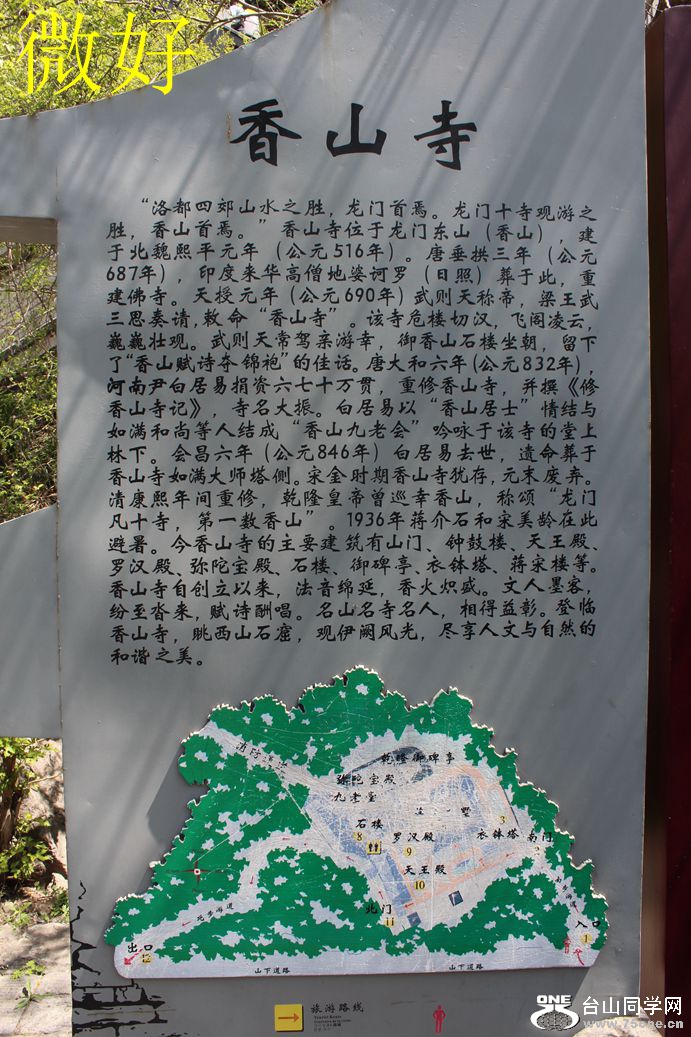 微好
香山寺
“洛都四郊山水之胜，龙门首焉。龙门十寺观游之
胜，香山首焉。”香山寺位于龙门东山（香山），建
于北魏熙平元年（公元516年）。唐垂拱三年（公元
687年），印度来华高僧地婆诃罗（日照）葬于此，重
建佛寺。天授元年（公元690年）武则天称帝，梁王武
三思奏请，敕命“香山寺”。该寺危楼切汉，飞阁凌云，
巍巍壮观。武则天常驾亲游幸，御香山石楼坐朝，留下
了“香山赋诗夺锦袍”的佳话。唐大和六年（公元832年），
河南尹白居易捐资六七十万贯，重修香山寺，并撰《修
香山寺记》，寺名大振。白居易以“香山居士”情结与
如满和尚等人结成“香山九老会”吟咏于该寺的堂上
林下。会昌六年（公元846年）白居易去世，遗命葬于
香山寺如满大师塔侧。宋金时期香山寺犹存，元末废弃。
清康熙年间重修，乾隆皇帝曾巡幸香山，称颂“龙门
凡十寺，第一数香山”。1936年蒋介石和宋美龄在此
避暑。今香山寺的主要建筑有山门、钟鼓楼、天王殿、
罗汉殿、弥陀宝殿、石楼、御碑亭、衣钵塔、蒋宋楼等。
香山寺自创立以来，法音绵延，香火炽盛。文人墨客，
纷至沓来，赋诗酬唱。名山名寺名人，相得益彰。登临
香山寺，眺西山石窟，观伊阙风光，尽享人文与自然的
和谐之美。
消防
乾隆御碑亭
弥陀宝殿
九老堂
墅
3
石楼
8
罗汉殿
9
衣钵塔
南门
2
天王殿
10
北门
11
北步游道
步游道
出口
12
入口
1
山下道路
山下道路
旅游路线
Tourist Route
ONE
台山同学网
www.755be.cn